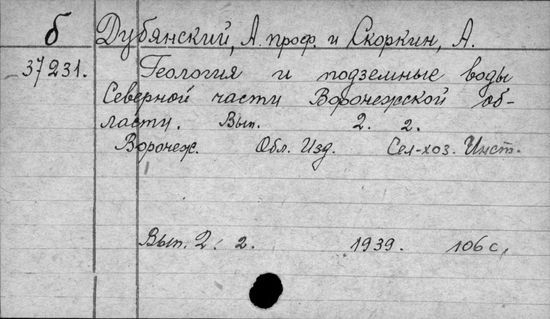 б Дубянский, А. проф. и Скоркин, А.
37231. Геология и подземные воды
Северной части Воронежской об-
ласти. Вып. 2. 2.
Воронеж. Обл. Изд. Сел-хоз. Инст.
Вып. 2. 2. 1939. 106 с.